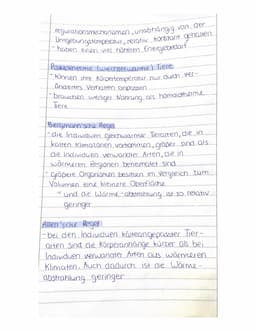 regulationsmechanismen, unabhängig von der
Umgebungstemperatur, relativ konstant gehalten
- haben einen viel höheren Energiebedarf
Poikilotherme (wechselwarme) Tiere
- können ihre Körpertemperatur nur durch ver-
ändertes Verhalten anpassen
- brauchen weniger Nahrung als homoiotherme
Tiere
Bergmann'sche Regel
- die Individuen gleichwarmer Tierarten, die in
kalten Klimazonen vorkommen, größer sind als
die Individuen verwandter Arten, die in
wärmeren Regionen beheimatet sind
- größere Organismen besitzen im Vergleich zum
Volumen eine kleinere Oberfläche
→ und die Wärme-abstrahlung ist so relativ
geringer
Allen'sche Regel
- bei den Individuen kälteangepasster Tier-
arten sind die Körperanhänge kürzer als bei
Individuen verwandter Arten aus wärmeren
Klimaten. Auch dadurch ist die Wärme-
abstrahlung geringer